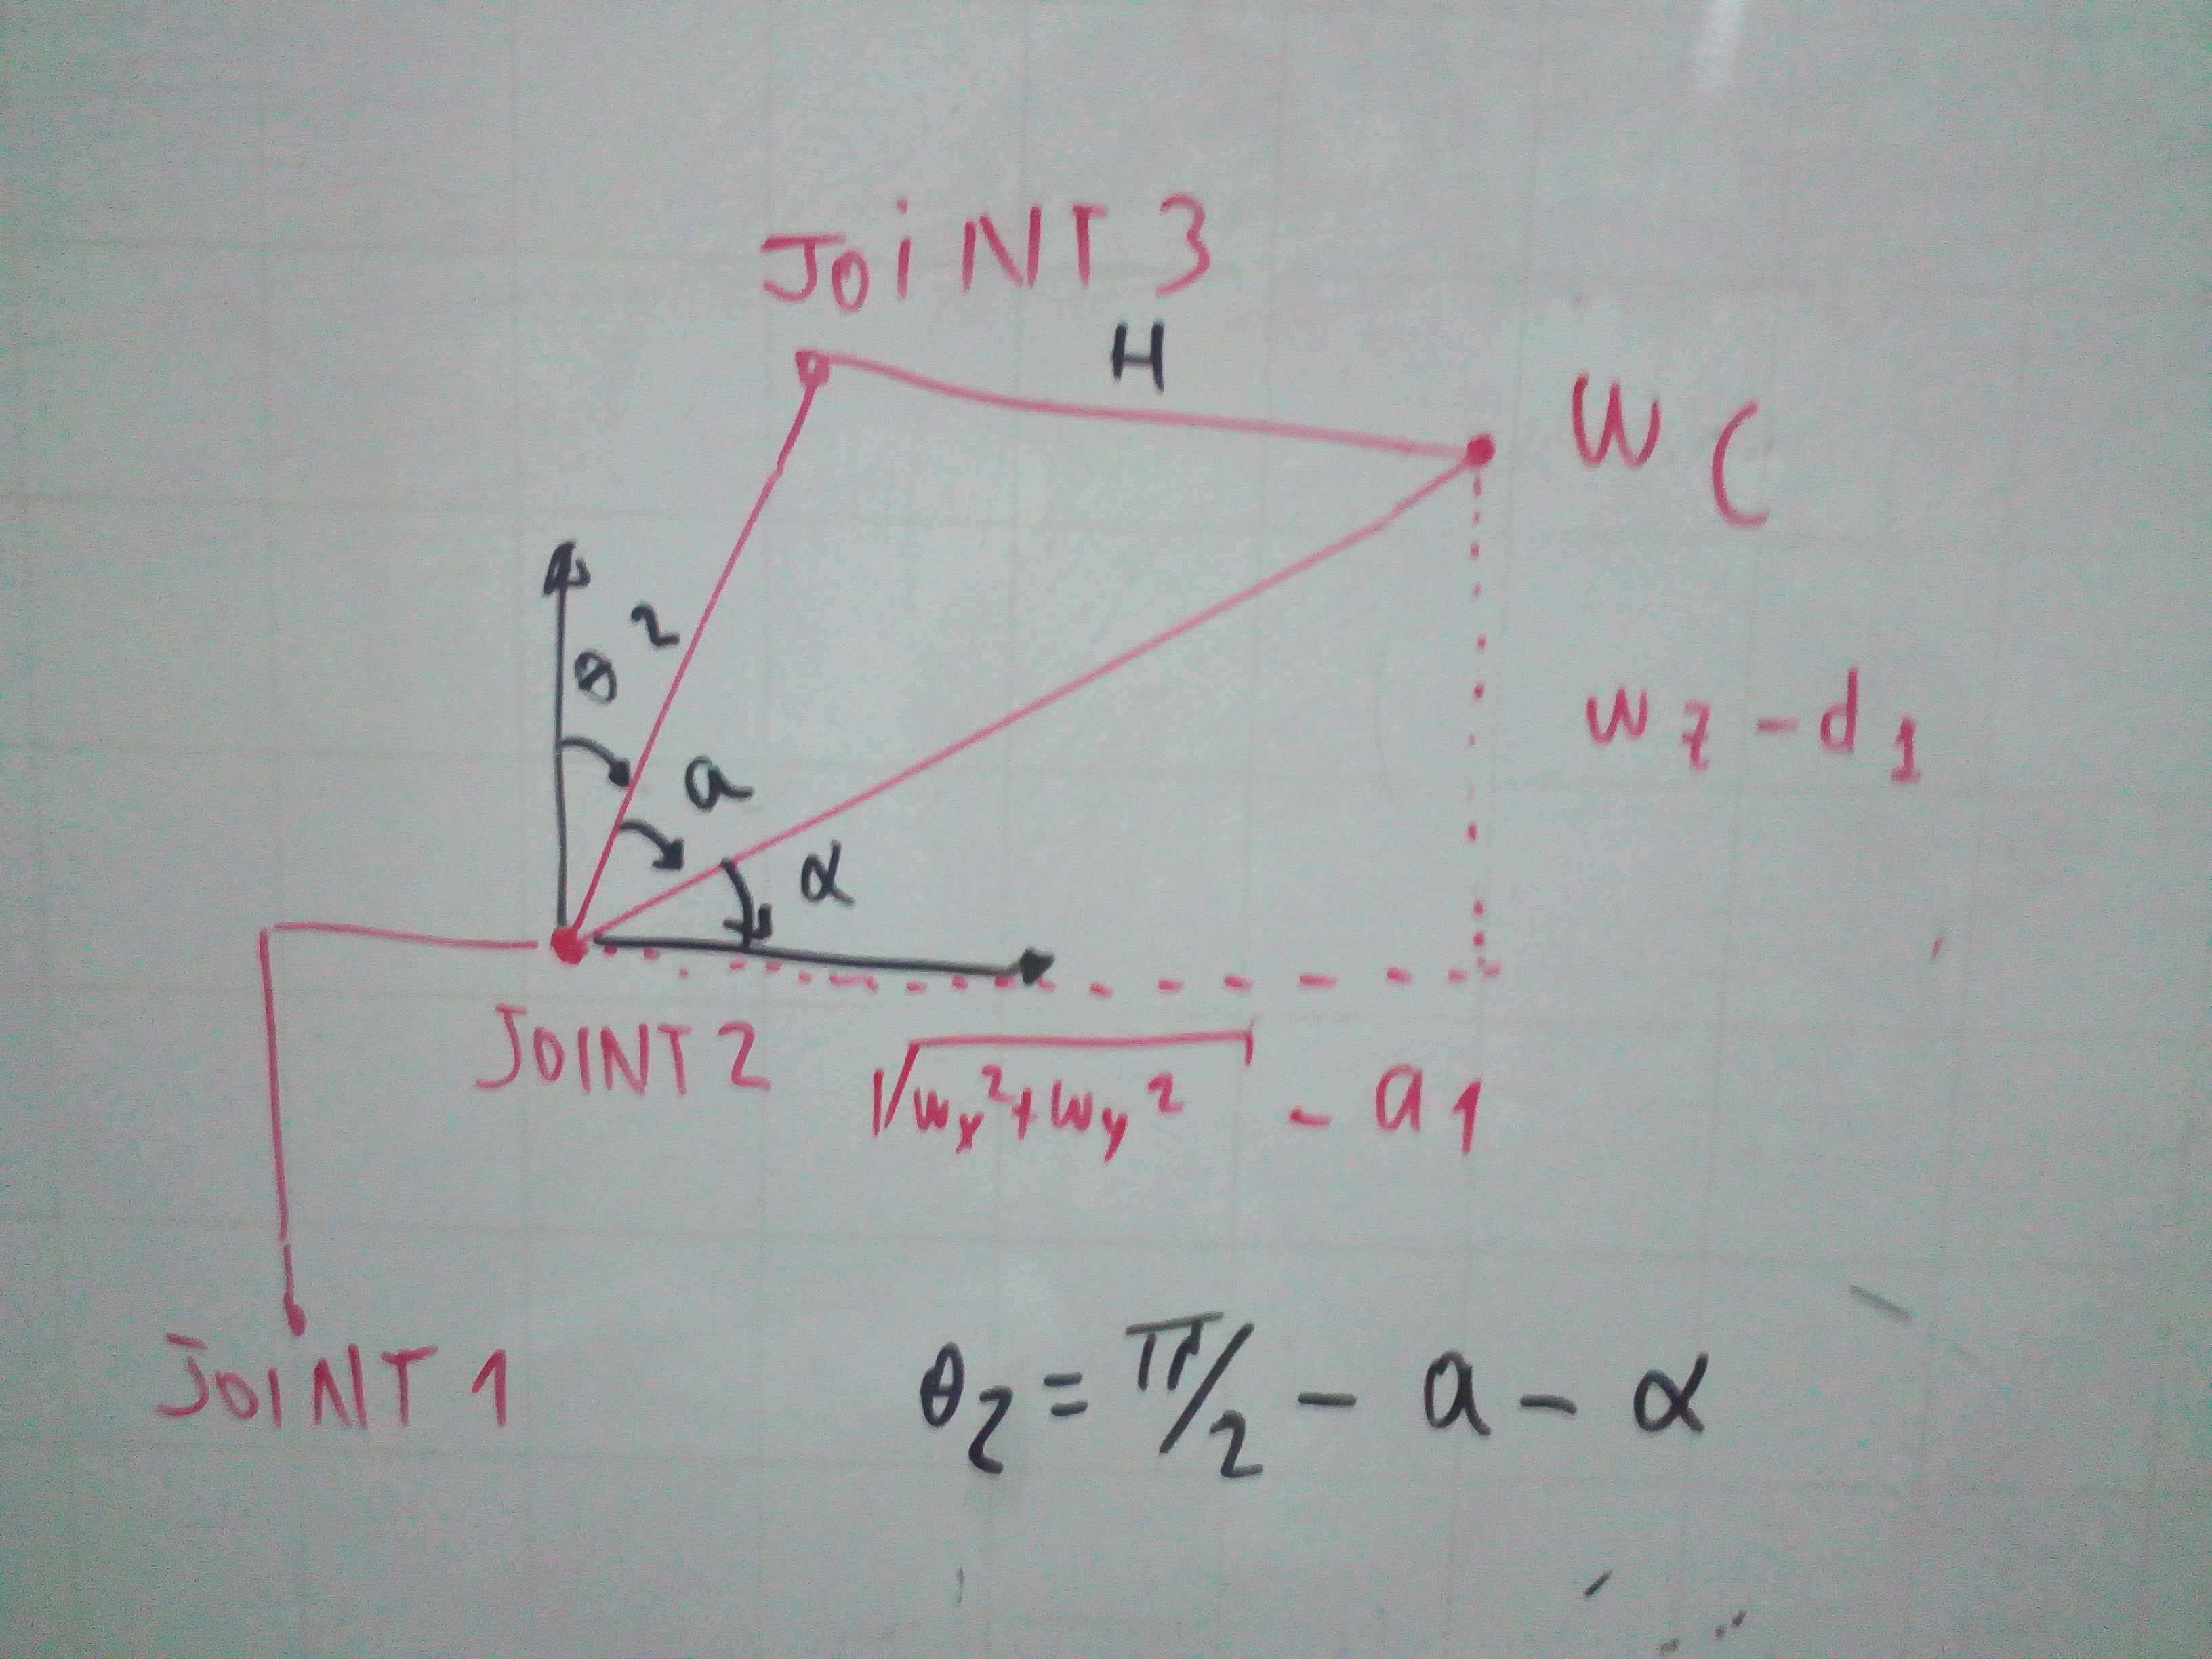 JOiNT 3
H
WC
θ2
a
wz - d1
α
JOINT 2
√wx²+wy² - a1
JOINT 1
θ2 = π/2 - a - α